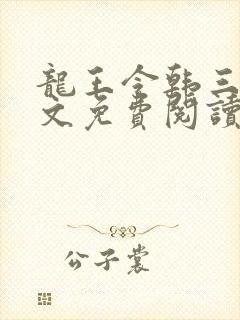 龍王令韩三
文免費閱讀
公子裳